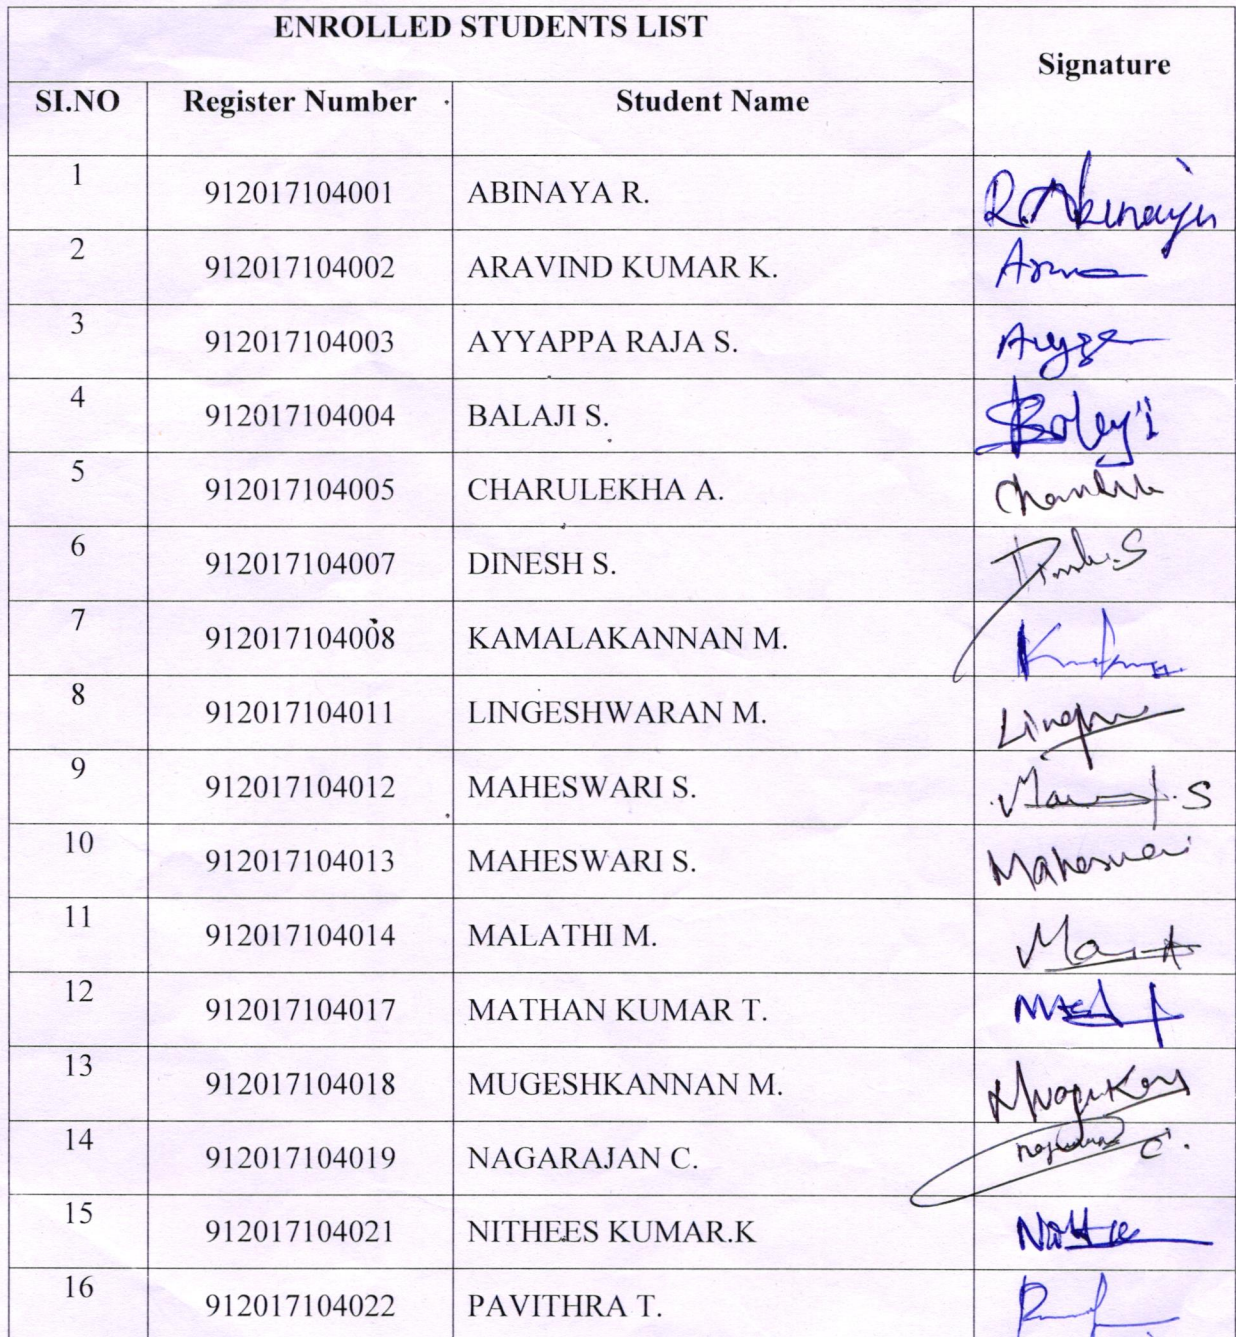 ENROLLED STUDENTS LIST
Signature
SI.NO Register Number Student Name
1 912017104001 ABINAYA R. R.Abinaya
2 912017104002 ARAVIND KUMAR K.
3 912017104003 AYYAPPA RAJA S.
4 912017104004 BALAJI S.
5 912017104005 CHARULEKHA A.
6 912017104007 DINESH S.
7 912017104008 KAMALAKANNAN M.
8 912017104011 LINGESHWARAN M.
9 912017104012 MAHESWARI S.
10 912017104013 MAHESWARI S. Maheswari
11 912017104014 MALATHI M.
12 912017104017 MATHAN KUMAR T.
13 912017104018 MUGESHKANNAN M.
14 912017104019 NAGARAJAN C.
15 912017104021 NITHEES KUMAR.K
16 912017104022 PAVITHRA T.